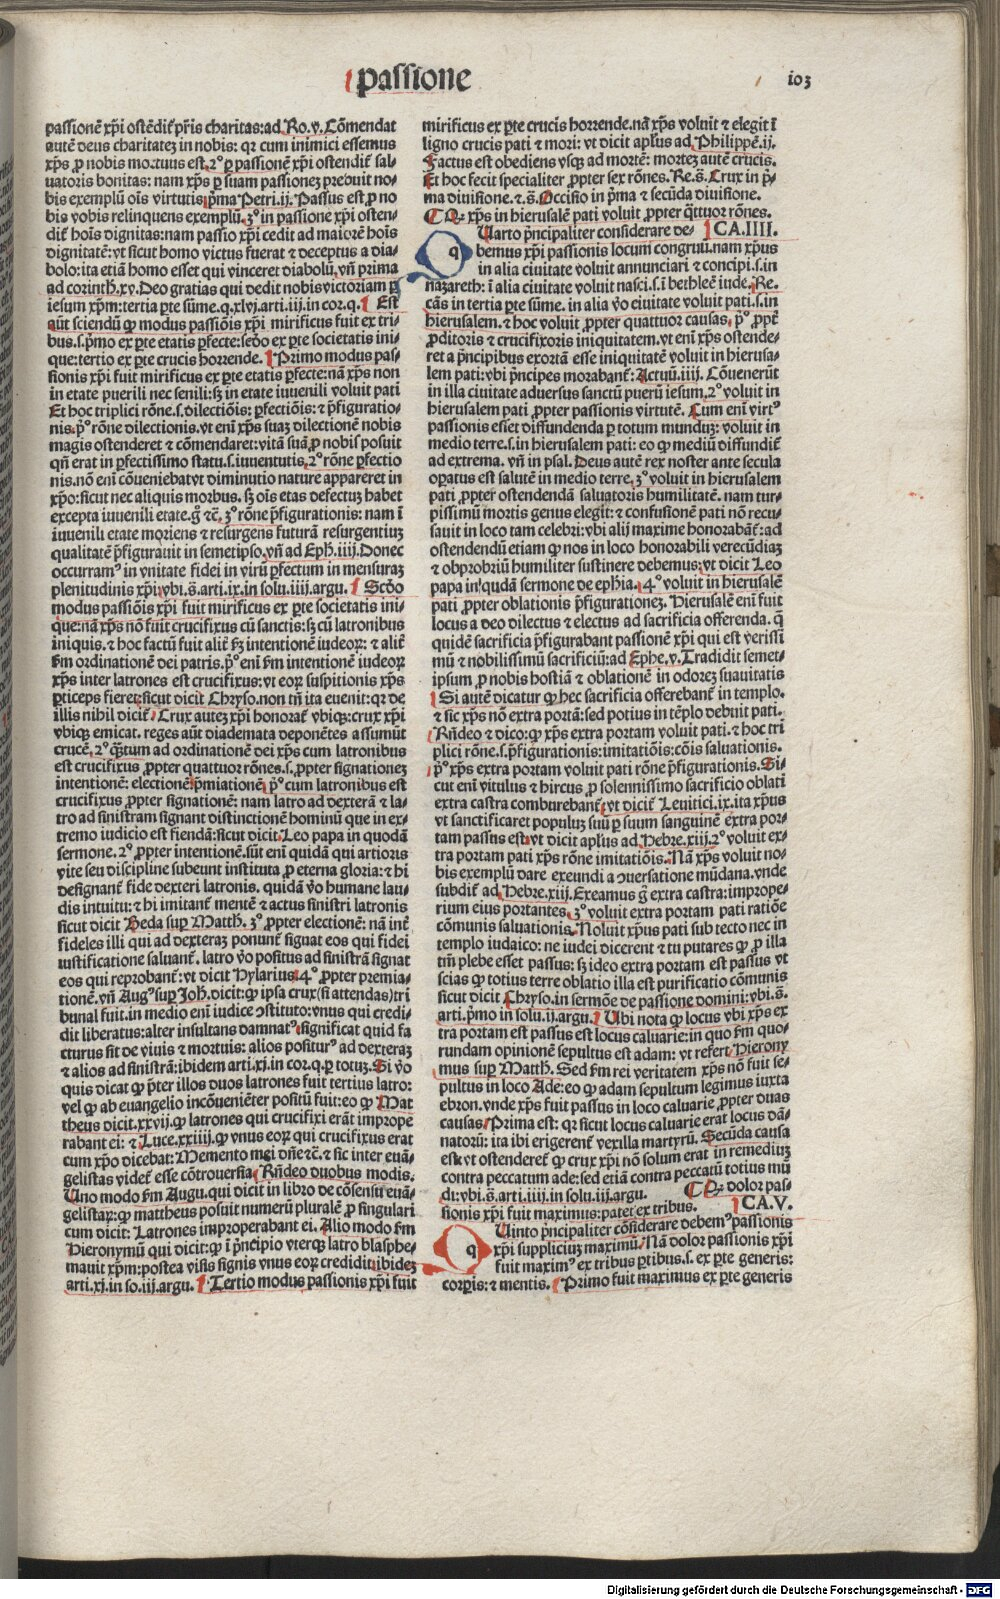 passione
103
passionē xp̄i ostēdit̄ pr̄is charitas: ad Ro.v. Cōmendat
autē deus charitatez in nobis: qꝛ cum inimici essemus
xp̄s ꝓ nobis moꝛtuus est. 2º ꝑ passionē xp̄i ostendit̄ sal-
uatoris bonitas: nam xp̄s ꝑ suam passionez prebuit no-
bis exemplū ois virtutis p̄ma Petri.ij. Passus est ꝓ no
bis vobis relinquens exemplū. 3º in passione xp̄i osten-
dit̄ hois dignitas: nam passio xp̄i cedit ad maiorē hois
dignitatē: vt sicut homo victus fuerat ⁊ deceptus a dia-
bolo: ita etiā homo esset qui vinceret diabolū. vn̄ prima
ad corinth.xv. Deo gratias qui dedit nobis victoriam ꝑ
iesum xp̄m: tertia ꝑte sūme. q.xlvj. arti.iij. in coꝛ.q. Est
aūt sciendū ꝙ modus passiōis xp̄i mirificus fuit ex tri-
bus. s. p̄mo ex ꝑte etatis ꝑfecte: scd̄o ex ꝑte societatis ini-
que: tertio ex ꝑte crucis horrende. Primo modus pas-
sionis xp̄i fuit mirificus ex ꝑte etatis ꝑfecte: nā xp̄s non
in etate puerili nec senili: sꝫ in etate iuuenili voluit pati
Et hoc triplici rōne. s. dilectiōis: ꝑfectiōis: ⁊ p̄figuratio-
nis. pº rōne dilectionis. vt eni xp̄s suaz dilectionē nobis
magis ostenderet ⁊ cōmendaret: vitā suā ꝓ nobis posuit
qn̄ erat in ꝑfectissimo statu. s. iuuentutis. 2º rōne ꝑfectio
nis. nō eni cōueniebat vt diminutio nature appareret in
xp̄o: sicut nec aliquis morbus. sꝫ ois etas defectuz habet
excepta iuuenili etate. g̊ ⁊c̄. 3º rōne p̄figurationis: nam ī
iuuenili etate moriens ⁊ resurgens futurā resurgentiuz
qualitatē p̄figurauit in semetipso. vn̄ ad Eph̄.iiij. Donec
occurramꝰ in vnitate fidei in virū ꝑfectum in mensuraz
plenitudinis xp̄i: vbi.s̄. arti.ix. in solu.iiij. argu. Scd̄o
modus passiōis xp̄i fuit mirificus ex ꝑte societatis ini-
que: nā xp̄s nō fuit crucifixus cū sanctis: sꝫ cū latronibus
iniquis. ⁊ hoc factū fuit alit̄ ẜm intentionē iudeoꝝ: ⁊ alit̄
ẜm ordinationē dei patris. pº eni ẜm intentionē iudeoꝝ
xp̄s inter latrones est crucifixus: vt eoꝝ suspitionis xp̄s
ꝑticeps fieret: sicut dicit Chryso. non tn̄ ita euenit: qꝛ de
illis nihil dicit̄. Crux autez xp̄i honorat̄ vbiqꝫ: crux xp̄i
vbiqꝫ emicat. reges aūt diademata deponētes assumūt
crucē. 2º qꝫtum ad ordinationē dei xp̄s cum latronibus
est crucifixus ꝓpter quattuor rōnes. s. ꝓpter signationez
intentionē: electionē: p̄miationē. pº cum latronibus est
crucifixus ꝓpter signationē: nam latro ad dexterā ⁊ la-
tro ad sinistram signant distinctionē hominū que in ex-
tremo iudicio est fiendā: sicut dicit Leo papa in quodā
sermone. 2º ꝓpter intentionē. sūt eni quidā qui artioris
vite seu discipline subeunt instituta ꝓ eterna gloria: ⁊ hi
designant̄ fide dexteri latronis. quidā v̊o humane lau-
dis intuitu: ⁊ hi imitant̄ mentē ⁊ actus sinistri latronis
sicut dicit Beda suꝑ Matth. 3º ꝓpter electionē: nā int̄
fideles illi qui ad dexteraz ponunt̄ signat eos qui fidei
iustificatione saluant̄. latro v̊o positus ad sinistrā signat
eos qui reprobant̄: vt dicit Hylarius. 4º ꝓpter premia-
tionē. vn̄ Augꝰ suꝑ Joh̄. dicit: ꝙ ipsa crux (si attendas) tri
bunal fuit. in medio eni iudice ↄstituto: vnus qui credi-
dit liberatus: alter insultans damnatꝰ. significat quid fa
cturus sit de viuis ⁊ mortuis: alios positurꝰ ad dexteraz
⁊ alios ad sinistrā: ibidem arti.xj. in coꝛ.q. ꝑ totuz. Si v̊o
quis dicat ꝙ p̄ter illos duos latrones fuit tertius latro:
vel ꝙ ab euangelio incōueniēter positū fuit: eo ꝙ Mat
theus dicit.xxvij. ꝙ latrones qui crucifixi erāt impropе
rabant ei: ⁊ Luce.xxiiij. ꝙ vnus eoꝝ qui crucifixus erat
cum xp̄o dicebat: Memento mei dn̄e ⁊c̄. ⁊ sic inter euā-
gelistas videt̄ esse cōtrouersia. Rn̄deo duobus modis.
Uno modo ẜm Augu. qui dicit in libro de cōsensu euā-
gelistaꝝ: ꝙ mattheus posuit numerū pluralē ꝓ singulari
cum dicit: Latrones improperabant ei. Alio modo ẜm
Hieronymū qui dicit: ꝙ ī p̄ncipio vterqꝫ latro blasphe-
mauit xp̄m: postea visis signis vnus eoꝝ credidit: ibidez
arti.xj. in so.iij. argu. Tertio modus passionis xp̄i fuit
mirificus ex ꝑte crucis horrende. nā xp̄s voluit ⁊ elegit ī
ligno crucis pati ⁊ mori: vt dicit apl̄us ad Philippē.ij.
Factus est obediens vsqꝫ ad mortē: mortez autē crucis.
Et hoc fecit specialiter ꝓpter sex rōnes. Re.s̄. Crux in p̄-
ma diuisione. ⁊.s̄. Occisio in p̄ma ⁊ secūda diuisione.
¶ Qꝛ xp̄s in hierusalē pati voluit ꝓpter q̄ttuor rōnes.
CA.IIII.
q
Uarto p̄ncipaliter considerare de-
bemus xp̄i passionis locum congruū. nam xp̄us
in alia ciuitate voluit annunciari ⁊ concipi. s. in
nazareth: ī alia ciuitate voluit nasci. s. ī bethleē iude. Re.
cās in tertia ꝑte sūme. in alia v̊o ciuitate voluit pati. s. in
hierusalem. ⁊ hoc voluit ꝓpter quattuor causas. pº ꝓpt̄
ꝓditoris ⁊ crucifixoris iniquitatem. vt eni xp̄s ostende-
ret a p̄ncipibus exortā esse iniquitatē voluit in hierusa-
lem pati: vbi p̄ncipes morabant̄: Actuū.iiij. Cōuenerūt
in illa ciuitate aduersus sanctū puerū iesum. 2º voluit in
hierusalem pati ꝓpter passionis virtutē. Cum eni virtꝰ
passionis esset diffundenda ꝑ totum munduz: voluit in
medio terre. s. in hierusalem pati: eo ꝙ mediū diffundit̄
ad extrema. vn̄ in psal. Deus autē rex noster ante secula
oꝑatus est salutē in medio terre. 3º voluit in hierusalem
pati ꝓpter ostendendā saluatoris humilitatē. nam tur-
pissimū mortis genus elegit: ⁊ confusionē pati nō recu-
sauit in loco tam celebri: vbi alij maxime honorabant̄: ad
ostendendū etiam ꝙ nos in loco honorabili verecūdiaz
⁊ obprobriū humiliter sustinere debemus: vt dicit Leo
papa in qudā sermone de ephia. 4º voluit in hierusalē
pati ꝓpter oblationis p̄figurationez. Hierusalē eni fuit
locus a deo dilectus ⁊ electus ad sacrificia offerenda. q̄
quidē sacrificia p̄figurabant passionē xp̄i qui est verissi
mū ⁊ nobilissimū sacrificiū: ad Ephe.v. Tradidit semet-
ipsum ꝓ nobis hostiā ⁊ oblationē in odorez suauitatis
Si autē dicatur ꝙ hec sacrificia offerebant̄ in templo.
⁊ sic xp̄s nō extra portā: sed potius in tēplo debuit pati.
Rn̄deo ⁊ dico: ꝙ xp̄s extra portam voluit pati. ⁊ hoc tri
plici rōne. s. p̄figurationis: imitatiōis: cōis saluationis.
pº xp̄s extra portam voluit pati rōne p̄figurationis. Si-
cut eni vitulus ⁊ hircus ꝓ solennissimo sacrificio oblati
extra castra comburebant̄: vt dicit̄ Leuitici.ix. ita xp̄us
vt sanctificaret populuz suū ꝑ suum sanguinē extra por-
tam passus est. vt dicit apl̄us ad Hebre.xiij. 2º voluit ex-
tra portam pati xp̄s rōne imitatiōis. Nā xp̄s voluit no-
bis exemplū dare exeundi a ↄuersatione mūdana. vnde
subdit̄ ad Hebre.xiij. Exeamus g̊ extra castra: impropе-
rium eius portantes. 3º voluit extra portam pati ratiōe
cōmunis saluationis. Noluit xp̄us pati sub tecto nec in
templo iudaico: ne iudei dicerent ⁊ tu putares ꝙ ꝓ illa
tm̄ plebe esset passus: sꝫ ideo extra portam est passus vt
scias ꝙ totius terre oblatio illa est purificatio cōmunis
sicut dicit Chryso. in sermōe de passione domini: vbi.s̄.
arti. p̄mo in solu.ij. argu. Ubi nota ꝙ locus vbi xp̄s ex
tra portam est passus est locus caluarie: in quo ẜm quo-
rundam opinionē sepultus est adam: vt refert Hierony
mus suꝑ Matth. Sed ẜm rei veritatem xp̄s nō fuit se-
pultus in loco Ade: eo ꝙ adam sepultum legimus iuxta
ebron. vnde xp̄s fuit passus in loco caluarie ꝓpter duas
causas. Prima est: qꝛ sicut locus caluarie erat locus dā-
natorū: ita ibi erigerent̄ vexilla martyrū. Secūda causa
est: vt ostenderet̄ ꝙ crux xp̄i nō solum erat in remediuz
contra peccatum ade: sed etiā contra peccatū totius mū
di: vbi.s̄. arti.iiij. in solu.iij. argu. ¶ Qꝛ dolor pas-
sionis xp̄i fuit maximus: patet ex tribus.
CA.V.
q
Uinto p̄ncipaliter cōsiderare debemꝰ passionis
xp̄i supplicium maximū. Nā dolor passionis xp̄i
fuit maximꝰ ex tribus ꝑtibus. s. ex ꝑte generis:
corꝑis: ⁊ mentis. Primo fuit maximus ex ꝑte generis
Digitalisierung gefördert durch die Deutsche Forschungsgemeinschaft - DFG